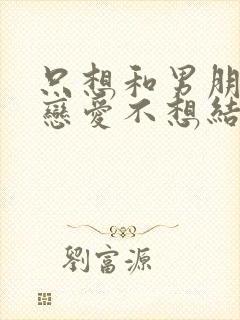 只想和男朋
戀愛不想結
劉富源